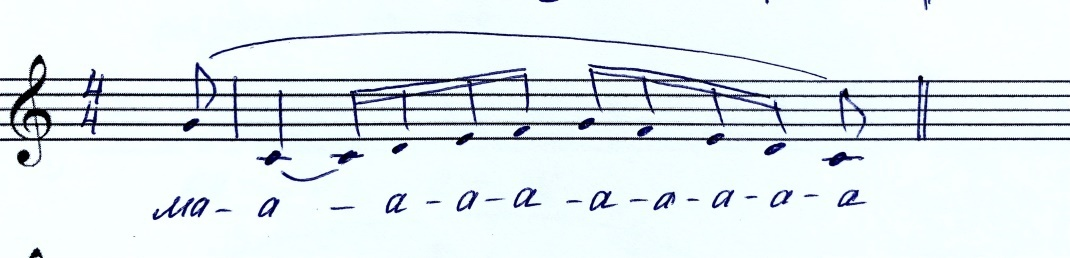 4
4
ма- а - а - а - а - а - а - а - а - а